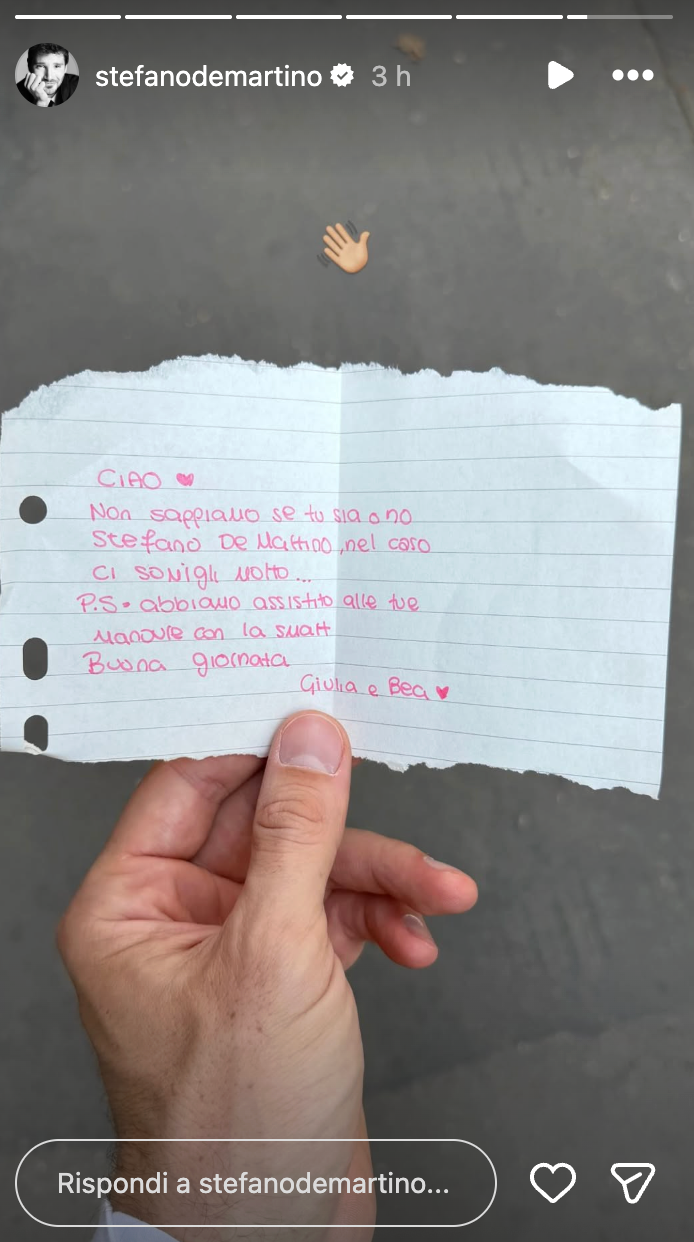 stefanodemartino 3 h
CIAO
Non sappiamo se tu sia o no
Stefano De Martino, nel caso
ci somigli molto...
P.S. abbiamo assistito alle tue
manovre con la smart
Buona giornata
Giulia e Bea
Rispondi a stefanodemartino...